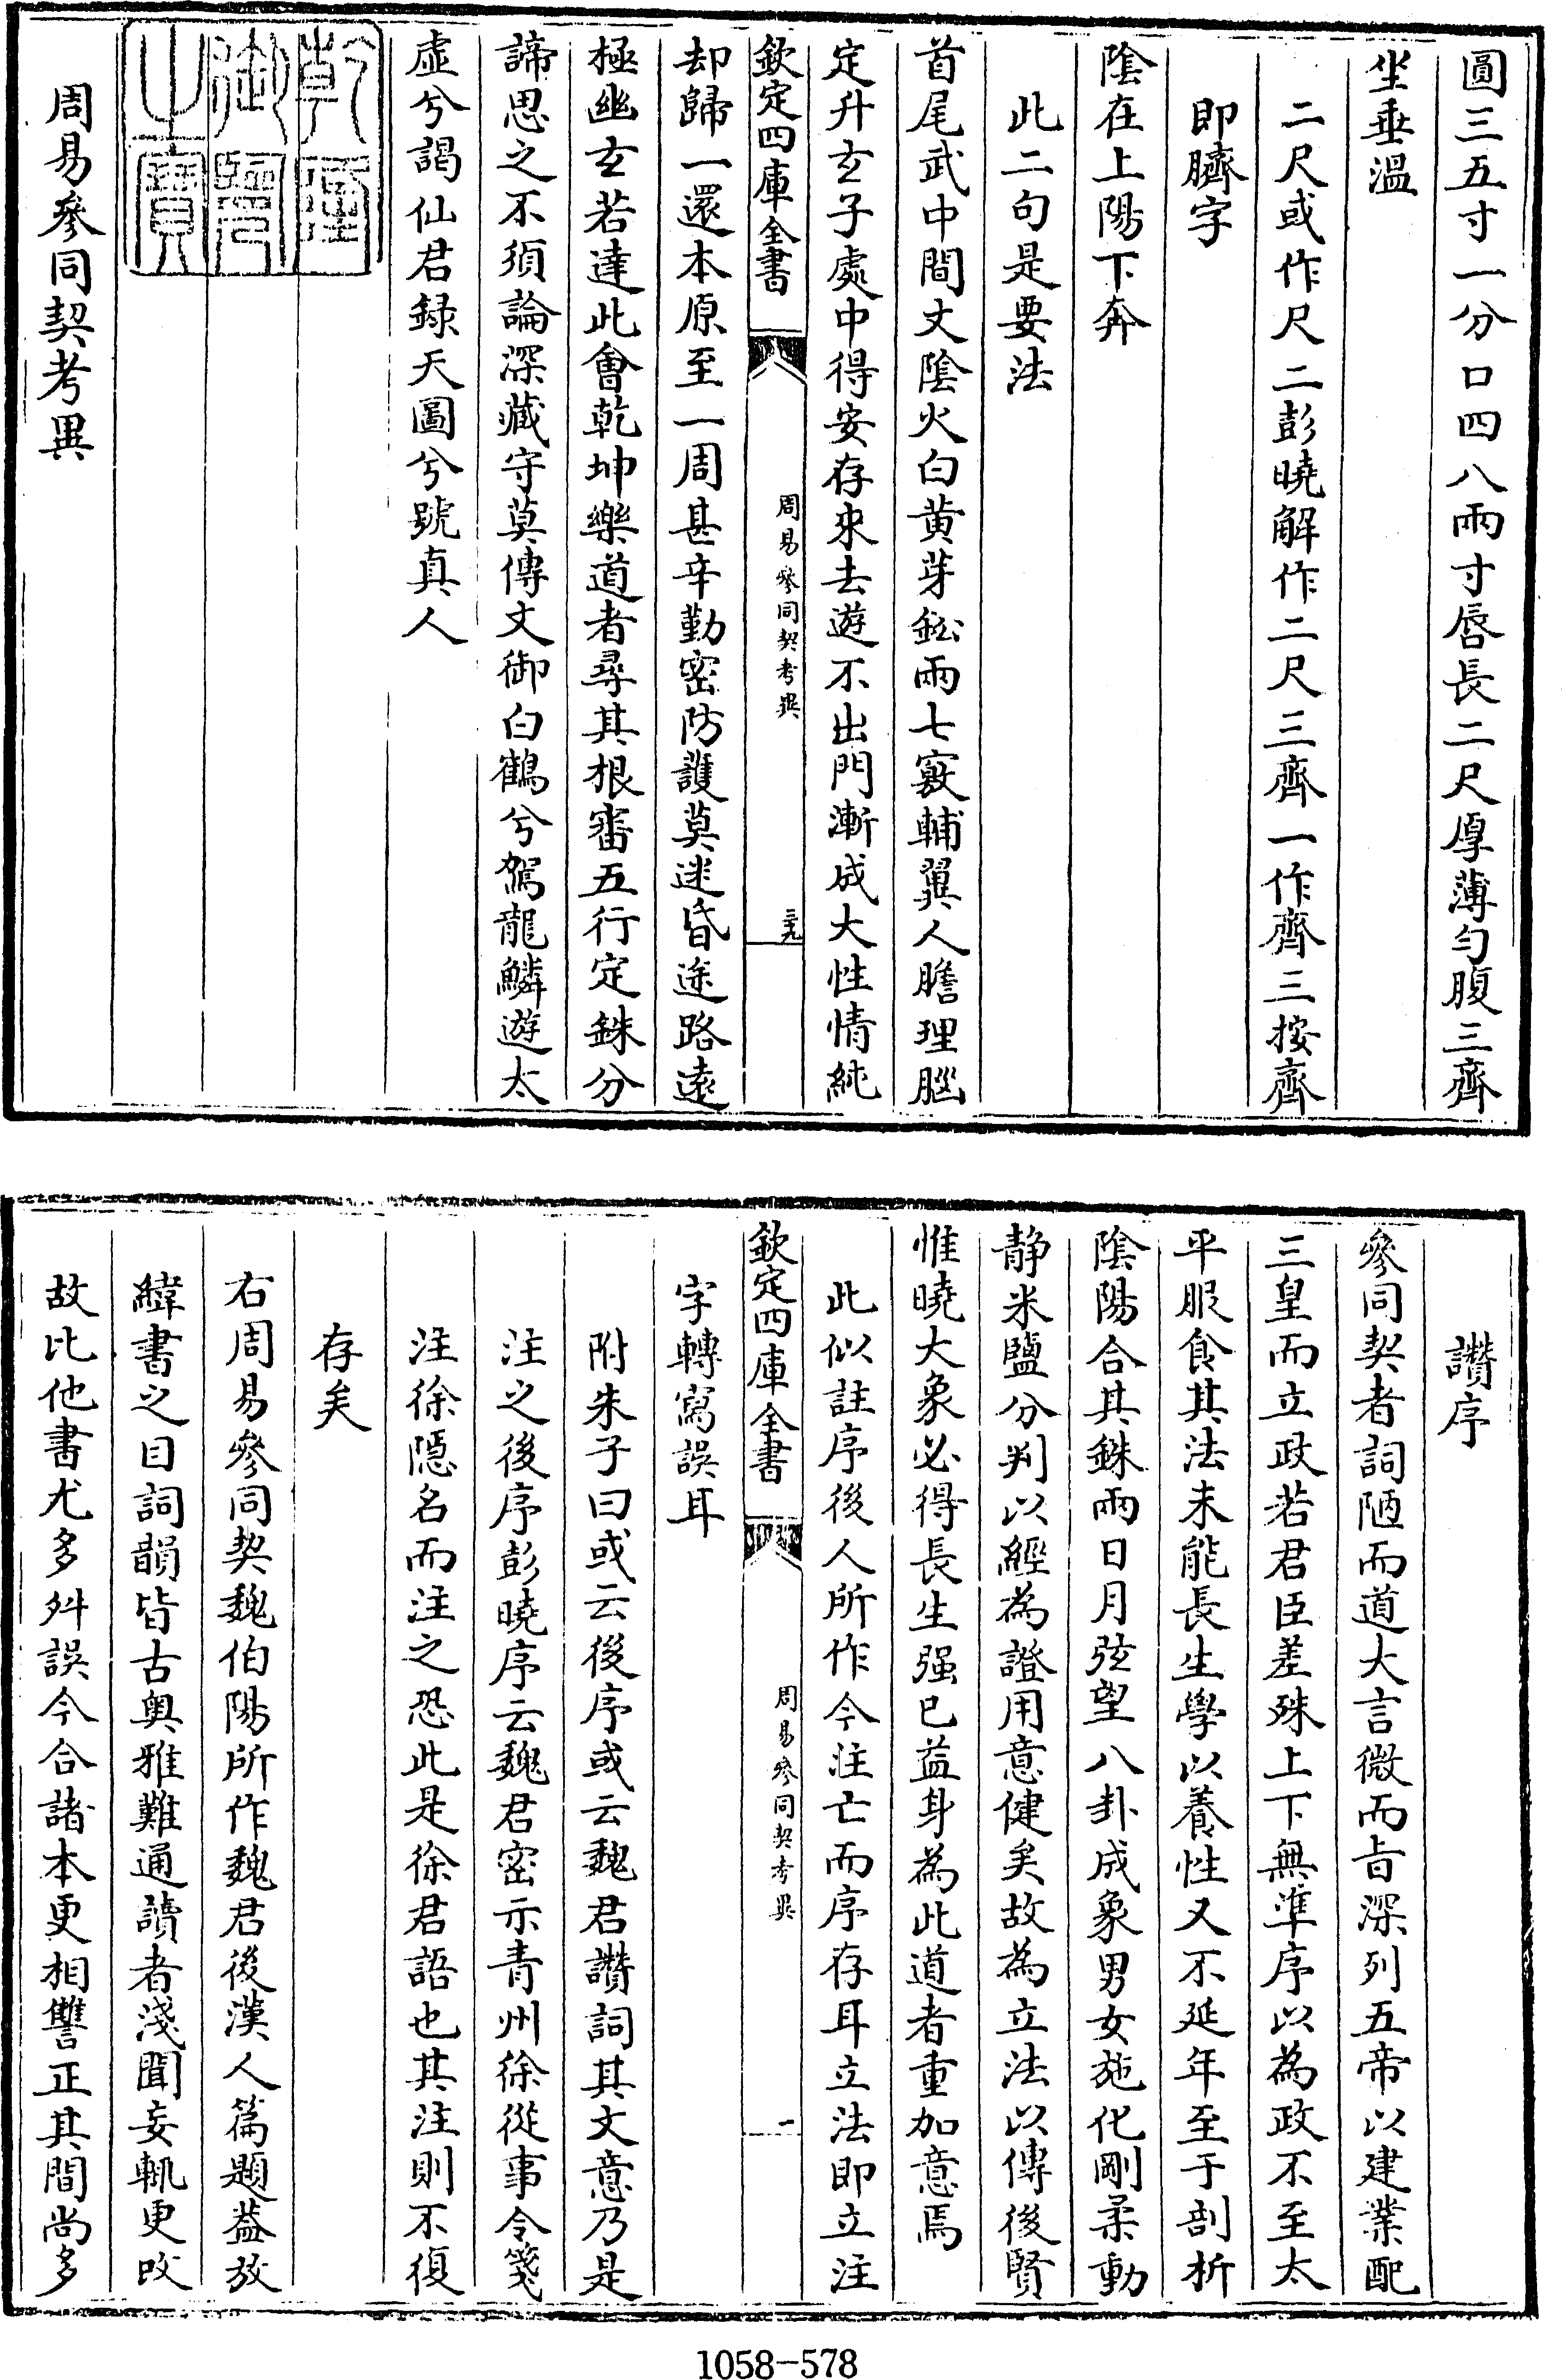 圓三五寸一分口四八兩寸唇長二尺厚薄勻腹三齊
坐垂溫
二尺或作尺二彭曉解作二尺三齊一作齊三按齊
即臍字
陰在上陽下奔
此二句是要法
首尾武中間文陰火白黃芽鈆兩七竅輔翼人贍理腦
定升玄子處中得安存來去遊不出門漸成大性情純
欽定四庫全書
周易參同契考異
三九
却歸一還本原至一周甚辛勤密防護莫迷昏途路遠
極幽玄若達此會乾坤樂道者尋其根審五行定銖分
諦思之不須論深藏守莫傳文御白鶴兮駕龍鱗遊太
虛兮謁仙君錄天圖兮號真人
乾隆
御覽
之寶
周易參同契考異
讚序
參同契者詞陋而道大言微而旨深列五帝以建業配
三皇而立政若君臣差殊上下無準序以為政不至太
平服食其法未能長生學以養性又不延年至于剖析
陰陽合其銖兩日月弦望八卦成象男女施化剛柔動
靜米鹽分判以經為證用意健矣故為立法以傳後賢
惟曉大象必得長生强已益身為此道者重加意焉
此似註序後人所作今注亡而序存耳立法即立注
欽定四庫全書
周易參同契考異
一
字轉寫誤耳
附朱子曰或云後序或云魏君讚詞其文意乃是
注之後序彭曉序云魏君密示青州徐從事令箋
注徐隱名而注之恐此是徐君語也其注則不復
存矣
右周易參同契魏伯陽所作魏君後漢人篇題蓋放
緯書之目詞韻皆古奧雅難通讀者淺聞妄輒更改
故比他書尤多舛誤今合諸本更相讐正其間尚多
1058-578